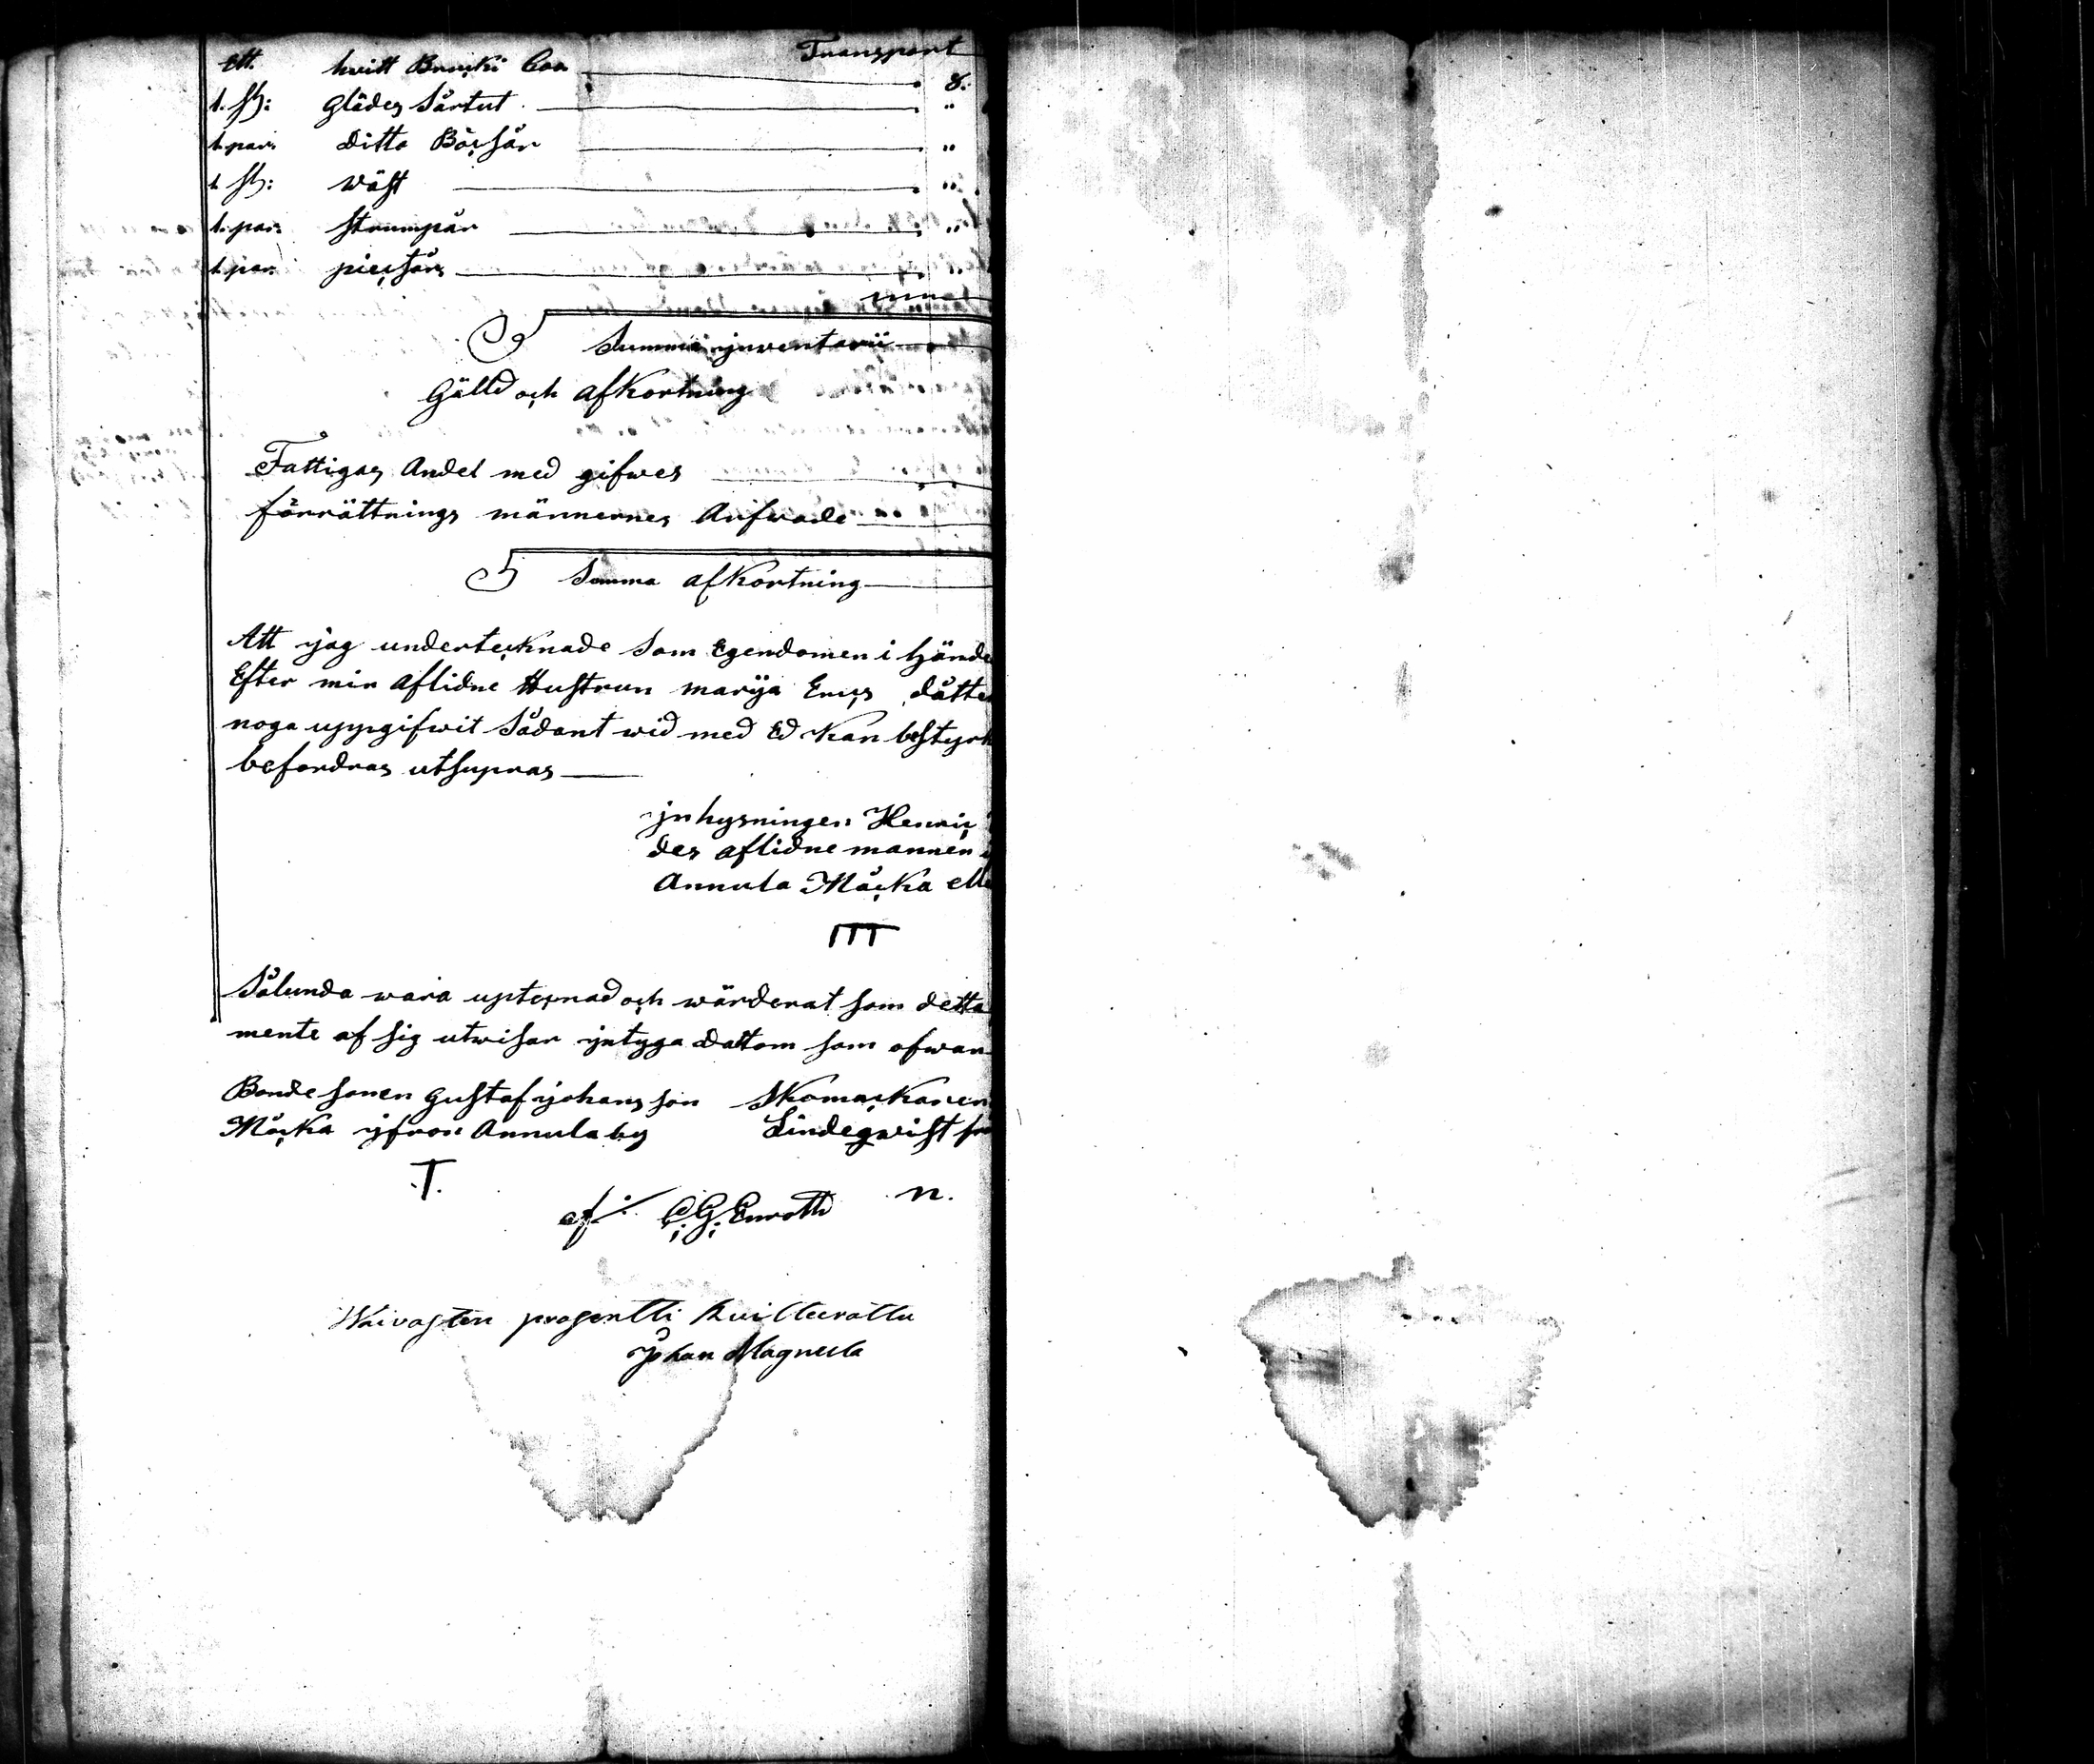 Transport
Ett. hwitt Bruuki Coa 8.
1. st: Glädes Sårtut "
1. par: ditto Böxsår "
1 st: wäst "
1. par: strumpår "
1 par: piextår "
Summa jnwentarii
Gälld och afkortning
Fattigas Andel med gifwes
förrättnings männernes Arfwade
Somma afkortning
Att jag undertecknade som Egendomen i hände
Efter min aflidne Hustrun marija Erics dåtte
noga uppgifwit Sådant wid med Ed kan bestyrk
befordras utsupras
jnhysningen Henric
des aflidne mannen
Annula Måcka elle
ITT
Sålunda wara uptecnad och wärderat som detta
mente af sig utwisar jntyga dattom som ofwan
Bonde sonen Gustaf johans son Skomackaren
Måcka ifrån Annula by Lindeqwist frå
T.
n.
af: C. G. Enroth
Waivasten prosentti kuitteerattu
Johan Magneela